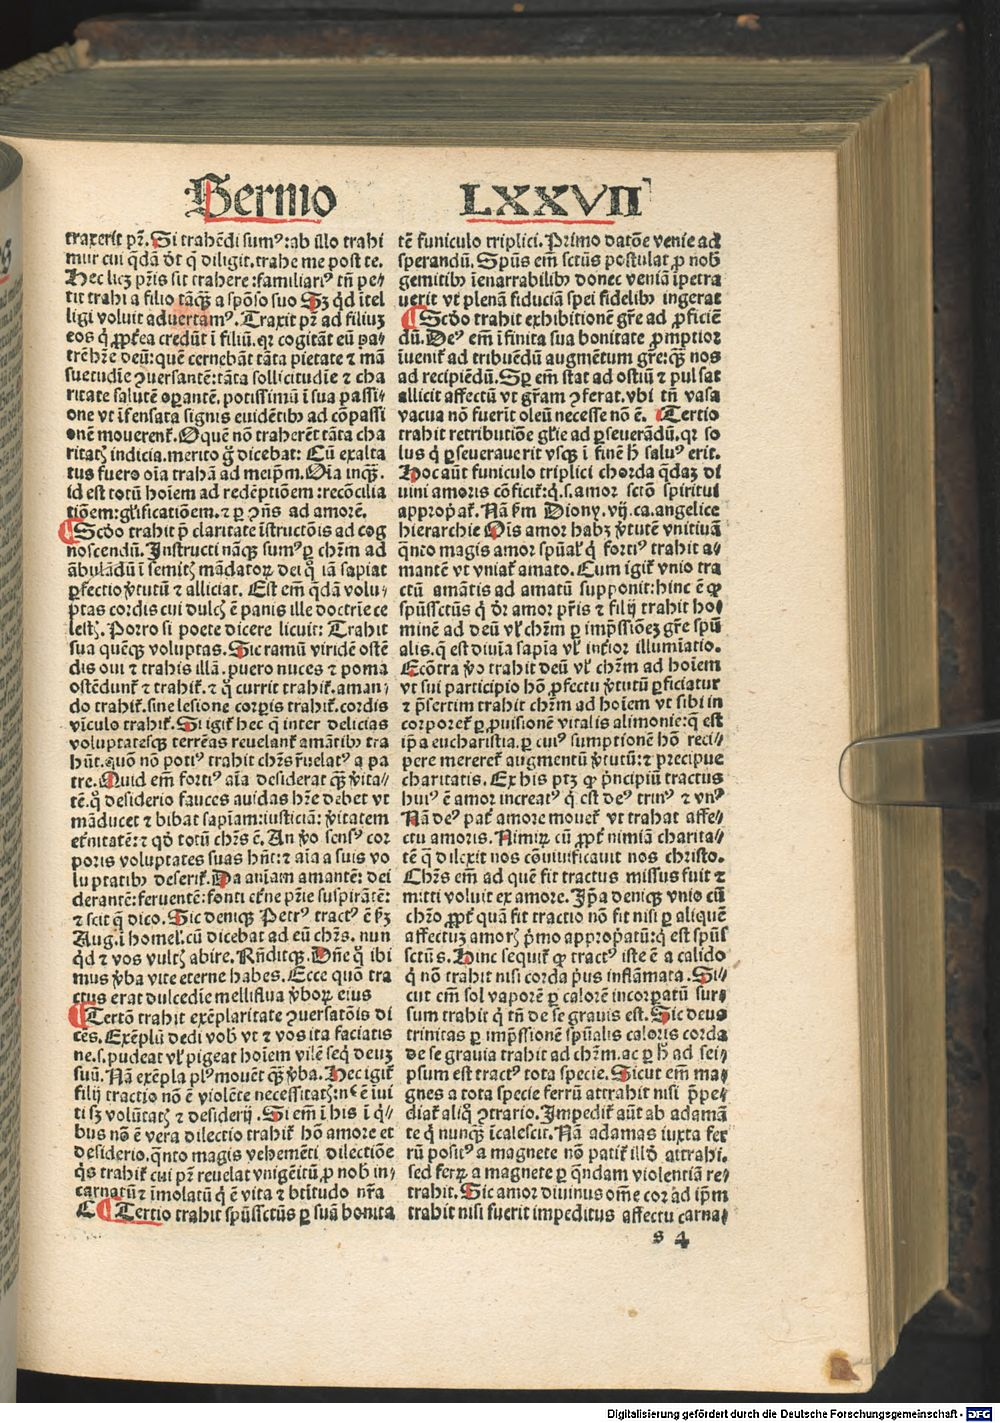 Sermo LXXVII
traxerit pr̄. Si trahēdi sumꝰ: ab illo trahi
mur cui qdā dt q diligit. trahe me post te.
Hec licꝫ pr̄is sit trahere: familiariꝰ tn̄ pe⸗
tit trahi a filio tāqꝫ a spōso suo Sꝫ qd ītel
ligi voluit advertamꝰ. Traxit pr̄ ad filiuꝫ
eos q ꝓpt̄ea credūt ī filiū. qꝛ cogitāt eū pa⸗
trē hr̄e deū: quē cernebāt tāta pietate ⁊ mā
suetudīe ꝯversantē: tāta sollicitudīe ⁊ cha
ritate salutē oꝑantē. potissimū ī sua passi⸗
one vt īsensata signis evidētibꝰ ad cōpassi
onē moverent̄. O quē nō traherēt tāta cha
ritatꝭ indicia. merito g̊ dicebat: Cū exalta
tus fuero oīa trahā ad meip̄m. Oīa inqꝫ.
id est totū hoīem ad redēptiōem: recōcilia
tiōem: gl̄ificatiōem. ⁊ ꝑ ꝯn̄s ad amorē.
¶ Scdo trahit p̄ claritate īstructōis ad cog
noscendū. Instructi nāqꝫ sumꝰ ꝑ chr̄m ad
ābulādū ī semitꝭ mādatoꝝ dei q̊ iā sapiat
ꝑfectio v̓tutū ⁊ alliciat. Est em̄ qdā volu⸗
ptas cordis cui dulcꝭ ē panis ille doctrīe ce
lestꝭ. Porro si poete dicere licuit: Trahit
sua quēqꝫ voluptas. Sic ramū viridē ostē
dis oui ⁊ trahis illā. puero nuces ⁊ poma
ostēdunt̄ ⁊ trahit̄. ⁊ q̊ currit trahit̄. aman⸗
do trahit̄. sine lesione corꝑis trahit̄. cordis
vīculo trahit̄. Si igit̄ hec q̄ inter delicias
voluptatesqꝫ terrēas revelant̄ amātibꝰ tra
hūt. quō nō potiꝰ trahit chr̄s r̓uelatꝰ a pa
tre. Quid em̄ fortiꝰ aīa desiderat qꝫ v̓ita⸗
tē. q̊ desiderio fauces avidas hr̄e debet vt
māducet ⁊ bibat sapīam: iusticiā: v̓itatem
et̓nitatē: ⁊ qd totū chr̄s ē. An v̓o sensꝰ cor
poris voluptates suas hn̄t: ⁊ aīa a suis vo
luptatibꝰ deserit̄. Da animam amantē: desi
derantē: ferventē: fonti et̓ne pr̄ie suspirātē:
⁊ scit q̄ dico. Sic deniqꝫ Petrꝰ tractꝰ ē ẜꝫ
Aug. ī homel̄. cū dicebat ad eū chr̄s. nun
qd ⁊ vos vultꝭ abire. Rn̄ditqꝫ. Dn̄e q̊ ibi
mus v̓ba vite eterne habes. Ecce quō tra
ctus erat dulcedīe melliflua v̓boꝝ eius
¶ Tertō trahit exēplaritate ꝯversatōis di
cēs. Exēplū dedi vob̄ vt ⁊ vos ita faciatis
ne. s. pudeat vl̓ pigeat hoīem vilē seq̄ deuꝫ
suū. Nā exēpla plꝰ movēt qꝫ v̓ba. Hec igit̄
filij tractio nō ē violēte necessitatꝭ: n̓ ē īui
ti sꝫ volūtatꝭ ⁊ desiderij. Si em̄ ī his ī q̄⸗
bus nō ē vera dilectio trahit̄ hō amore et
desiderio. qnto magis vehemēti dilectiōe
qs trahit̄ cui pr̄ revelat vnigēitū ꝓ nob̄ in⸗
carnatū ⁊ īmolatū q̇ ē vita ⁊ btītudo nr̄a
C ¶ Tertio trahit spūssctūs ꝑ suā bonita
tē funiculo triplici. Primo datōe venie ad
sperandū. Spūs em̄ sctūs postulat ꝓ nob̄
gemitibꝰ īenarrabilibꝰ donec veniā īpetra
uerit vt plenā fiduciā spei fidelibꝰ ingerat
¶ Scdo trahit exhibitionē gr̄e ad ꝓficiē
dū. Deꝰ em̄ īfinita sua bonitate ꝓmptior
īvenit̄ ad tribuēdū augmētum gr̄e: qꝫ nos
ad recipiēdū. Sꝑ em̄ stat ad ostiū ⁊ pulsat
allicit affectū vt gr̄am ꝯferat. vbi tn̄ vasa
vacua nō fuerit oleū necesse nō ē. ¶ Tertio
trahit retributiōe gl̄ie ad ꝑseverādū. qꝛ so
lus q̇ ꝑseveraverit vsqꝫ ī finē h̄ saluꝰ erit.
Hoc aūt funiculo triplici chorda qdaꝫ di
vini amoris cōficit̄: q̇. s. amor sctō spiritui
appropat̄. Nā ẜm Diony. vij. ca. angelice
hierarchie Oīs amor habꝫ v̓tutē vnitivā
qnto magis amor spūal̓ q̇ fortiꝰ trahit a⸗
mantē vt vniat̄ amato. Cum igit̄ vnio tra
ctū amātis ad amatū supponit: hinc ē ꝙ
spūssctūs q̇ dr̄ amor pr̄is ⁊ filij trahit ho⸗
minē ad deū vl̓ chr̄m ꝑ imp̄ssiōeꝫ gr̄e spū
alis. q̄ est divīa sapīa vl̓ int̓ior illumīatio.
Ecōtra v̓o trahit deū vl̓ chr̄m ad hoīem
vt sui participio hō ꝓfectu v̓tutū ꝑficiatur
⁊ p̄sertim trahit chr̄m ad hoīem vt sibi in
corporet̄ ꝑ ꝓvisionē vitalis alimonie: q̄ est
ip̄a eucharistia. ꝑ cuiꝰ sumptionē hō reci⸗
pere meret̄ augmentū v̓tutū: ⁊ precipue
charitatis. Ex his ptꝫ ꝙ prīcipiū tractus
huiꝰ ē amor increatꝰ q̇ est deꝰ trinꝰ ⁊ vnꝰ
Nā deꝰ pat̄ amore movet̄ vt trahat affe⸗
ctu amoris. Nimiꝝ cū ꝓpt̄ nimiā charita⸗
tē q̄ dilexit nos cōvivificavit nos christo.
Chr̄s em̄ ad quē fit tractus missus fuit ⁊
mitti voluit ex amore. Ip̄a deniqꝫ vnio cū
chr̄o ꝓpt̄ quā fit tractio nō fit nisi ꝑ aliquē
affectuꝫ amorꝭ p̄mo appropatū: q̇ est spūs
sctūs. Hinc sequit̄ ꝙ tractꝰ iste ē a calido
q̇ nō trahit nisi corda pius inflāmata. Si⸗
cut em̄ sol vaporē ꝑ calorē incorꝑatū sur⸗
sum trahit q̇ tn̄ de se gravis est. Sic deus
trinitas ꝑ impressionē spūalis caloris corda
de se gravia trahit ad chr̄m. ac ꝑ h̄ ad sei⸗
psum est tractꝰ tota specie. Sicut em̄ ma⸗
gnes a tota specie ferrū attrahit nisi īpe⸗
diat̄ aliq̊ ꝯtrario. Impedit̄ aūt ab adamā
te q̇ nunqꝫ īcalescit. Nā adamas iuxta fer
rū positꝰ a magnete nō patit̄ illd attrahi.
sed ferꝝ a magnete ꝑ qndam violentiā re⸗
trahit. Sic amor divinus om̄e cor ad ip̄m
trahit nisi fuerit impeditus affectu carna⸗
s 4
Digitalisierung gefördert durch die Deutsche Forschungsgemeinschaft - DFG